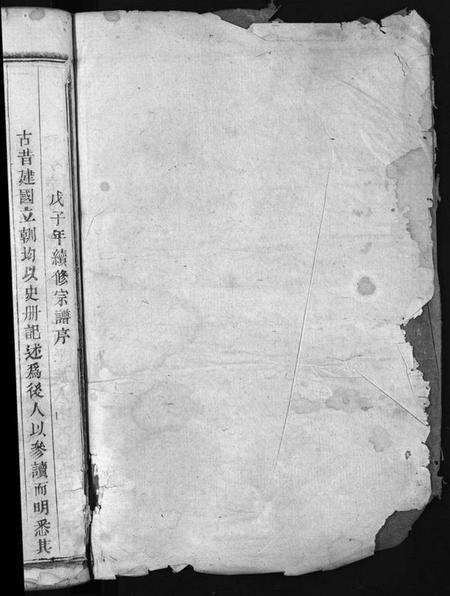 戊子年續修宗譜序
古昔建國立朝均以史册記述爲後人以參讀而明悉其